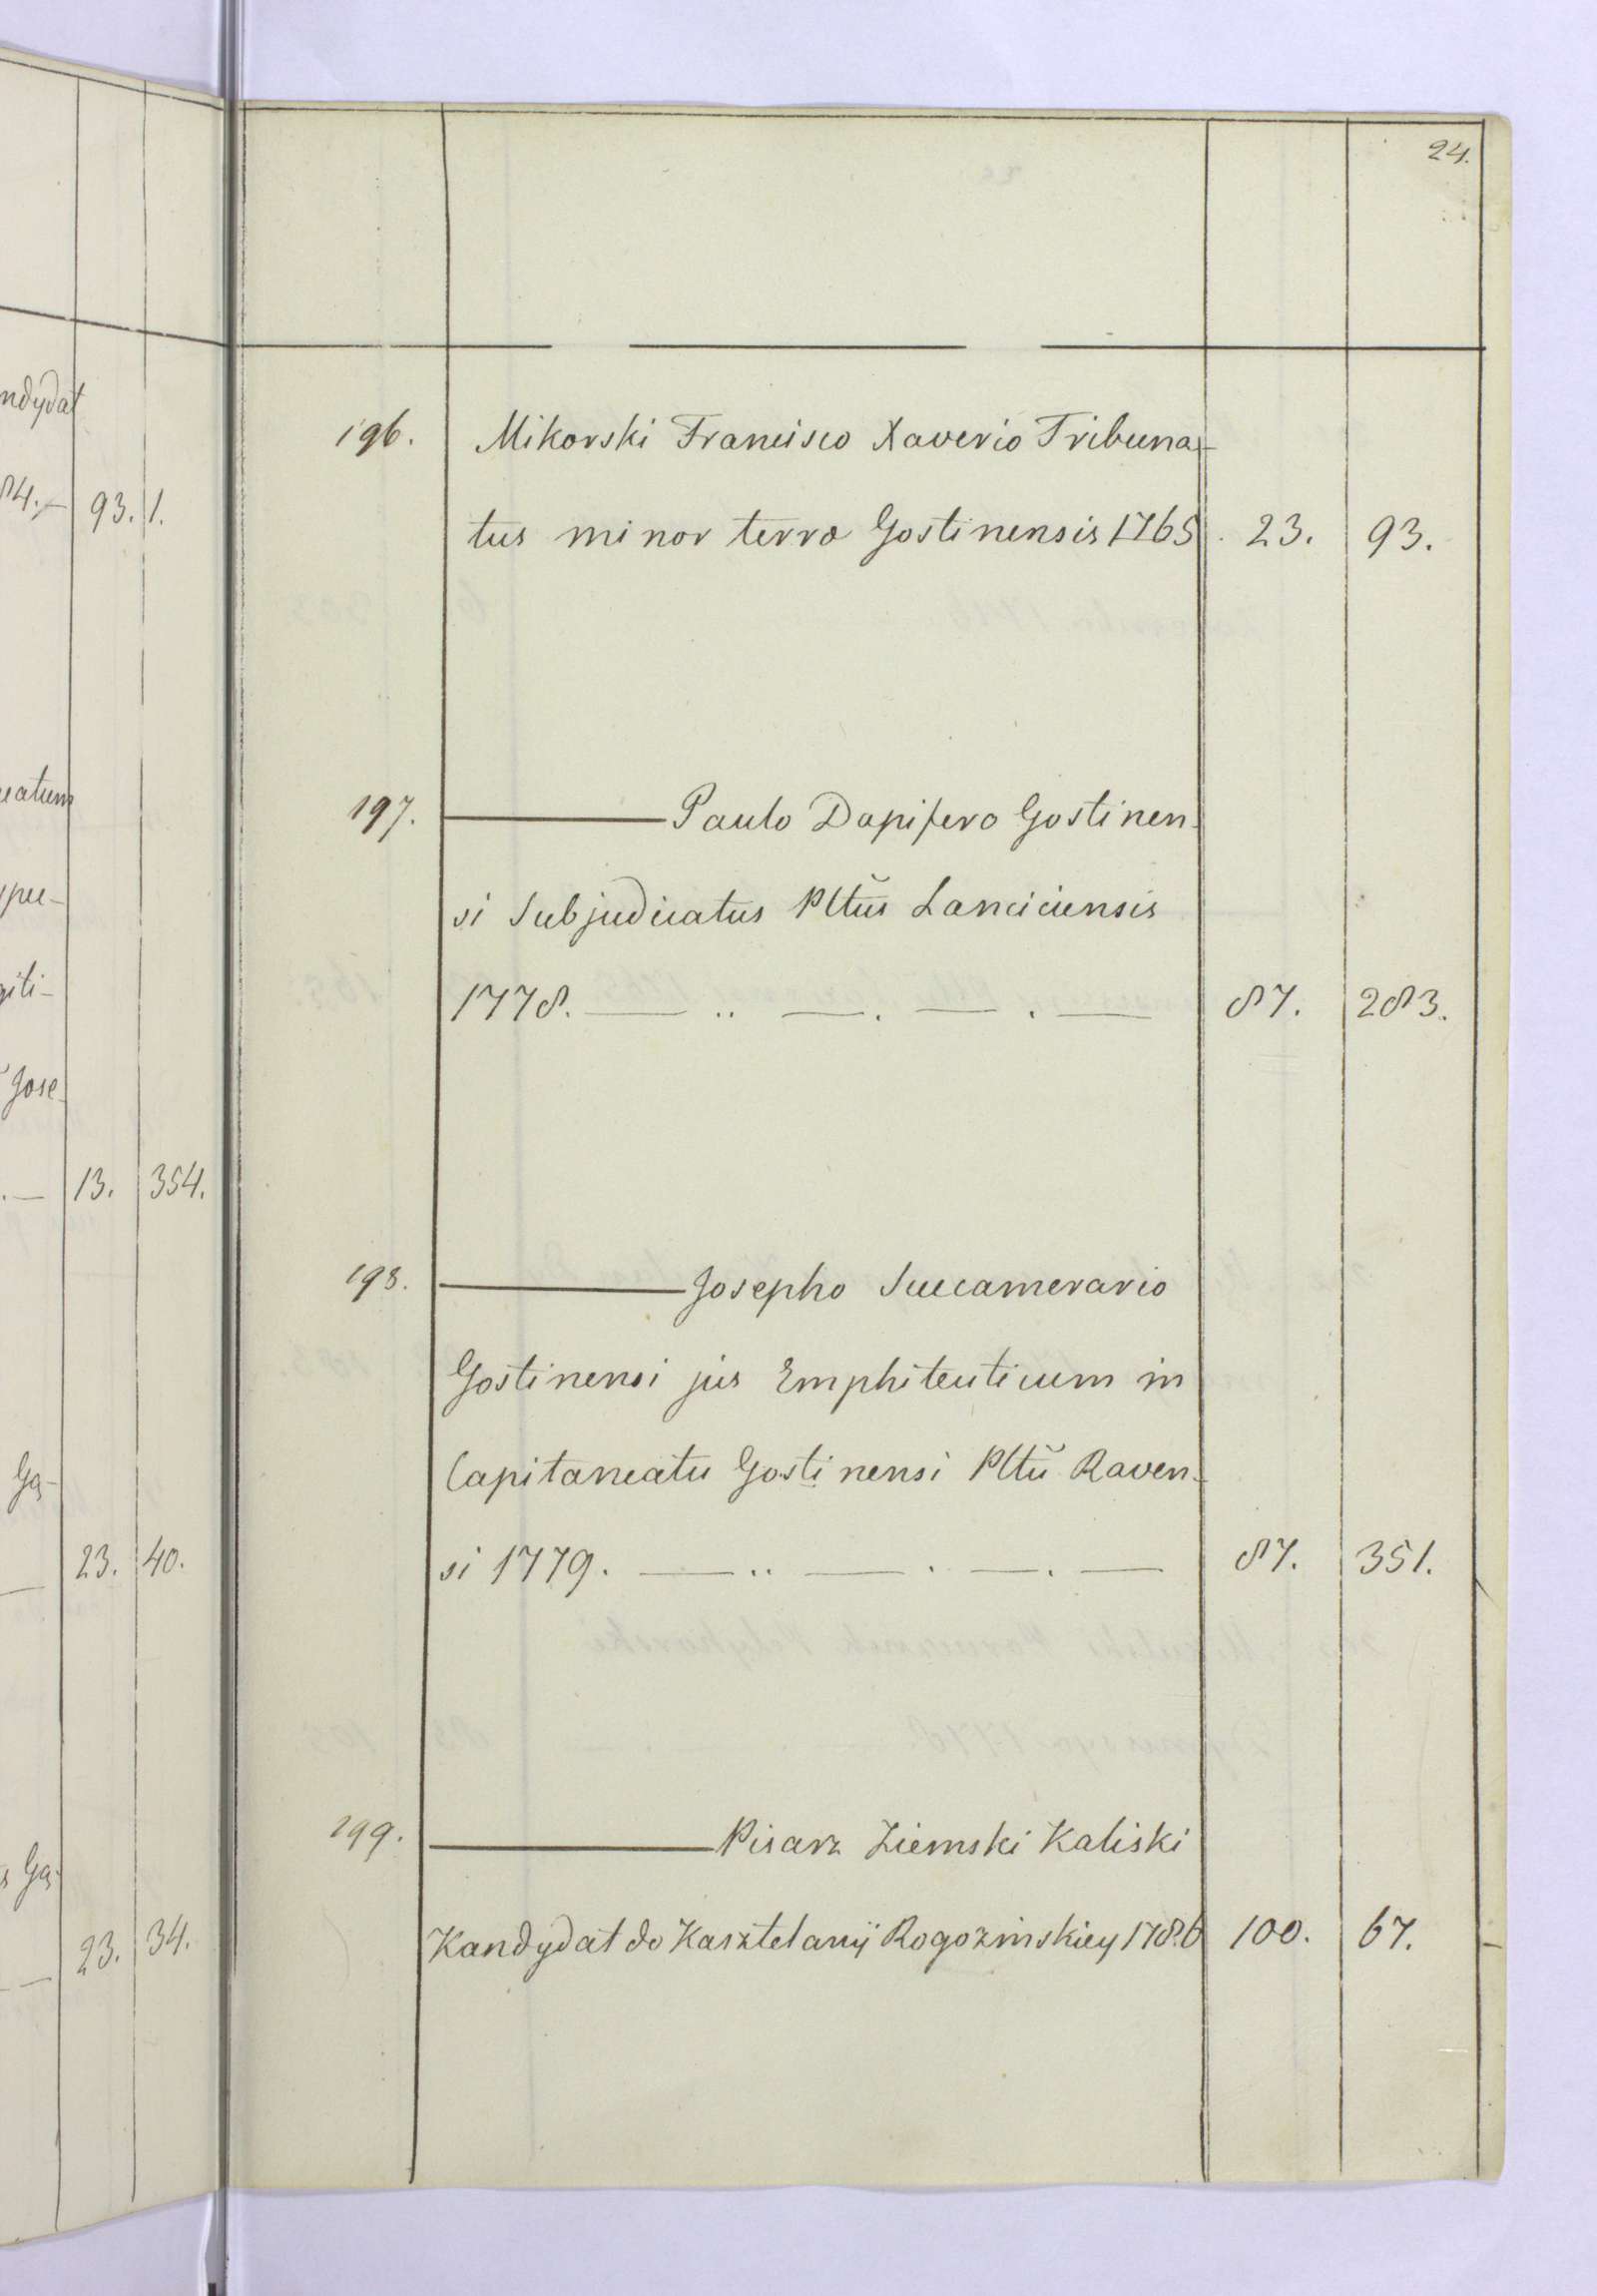 24.
ndydat
84.— 93. 1.
eatum
ypu-
giti-
Jose
.— 13. 354.
Gą-
— 23. 40.
s Gą-
— 23. 34.
196. Mikorski Francisco Xaverio Tribuna-
tus minor terra Gostinensis 1765. 23. 93.
197. ——— Paulo Dapifero Gostinen-
si Subjudicatus Pltűs Lanciciensis
1778. — .. — . — . — 87. 283.
198. ——— Josepho Succamerario
Gostinensi jus Emphiteuticum in
Capitaneatu Gostinensi Pltű Raven-
si 1779. — .. — . — . — 87. 351.
199. ——— Pisarz Ziemski Kaliski
Kandydat do Kasztelanÿ Rogozinskiey 1786 100. 67.